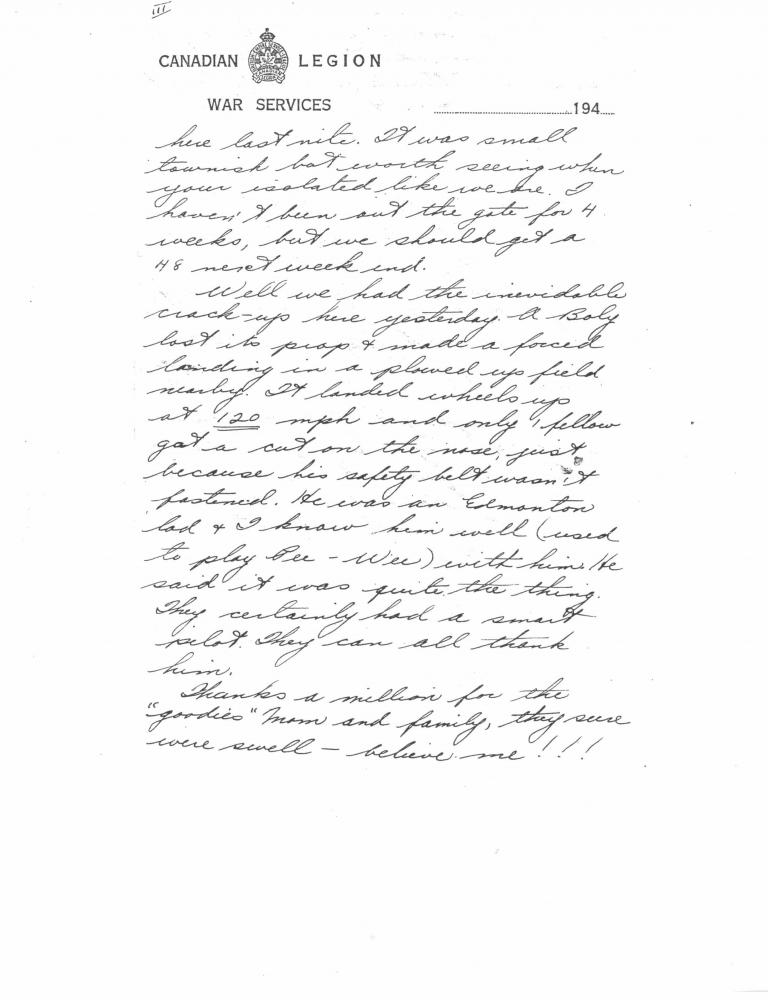 III
CANADIAN LEGION
WAR SERVICES 194
here last nite. It was small
townish but worth seeing when
your isolated like we are. I
haven't been out the gate for 4
weeks, but we should get a
48 next week end.
Well we had the inevidable
crack-up here yesterday. A Boly
lost its prop & made a forced
landing in a plowed up field
nearby. It landed wheels up
at 120 mph and only 1 fellow
got a cut on the nose, just
because his safety belt wasn't
fastened. He was an Edmonton
lad & I know him well (used
to play Pee-Wee) with him. He
said it was quite the thing.
They certainly had a smart
pilot. They can all thank
him.
Thanks a million for the
"goodies" Mom and family, they sure
were swell - believe me!!!